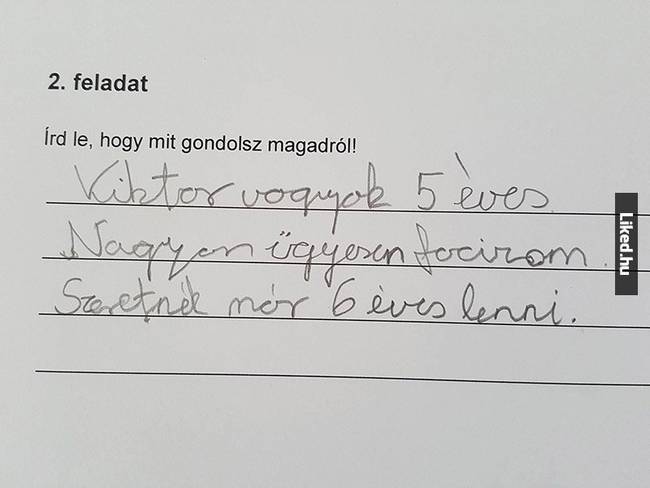 2. feladat
Írd le, hogy mit gondolsz magadról!
Viktor vagyok 5 éves
Nagyon ügyesen focizom.
Szeretnék már 6 éves lenni.
Liked.hu